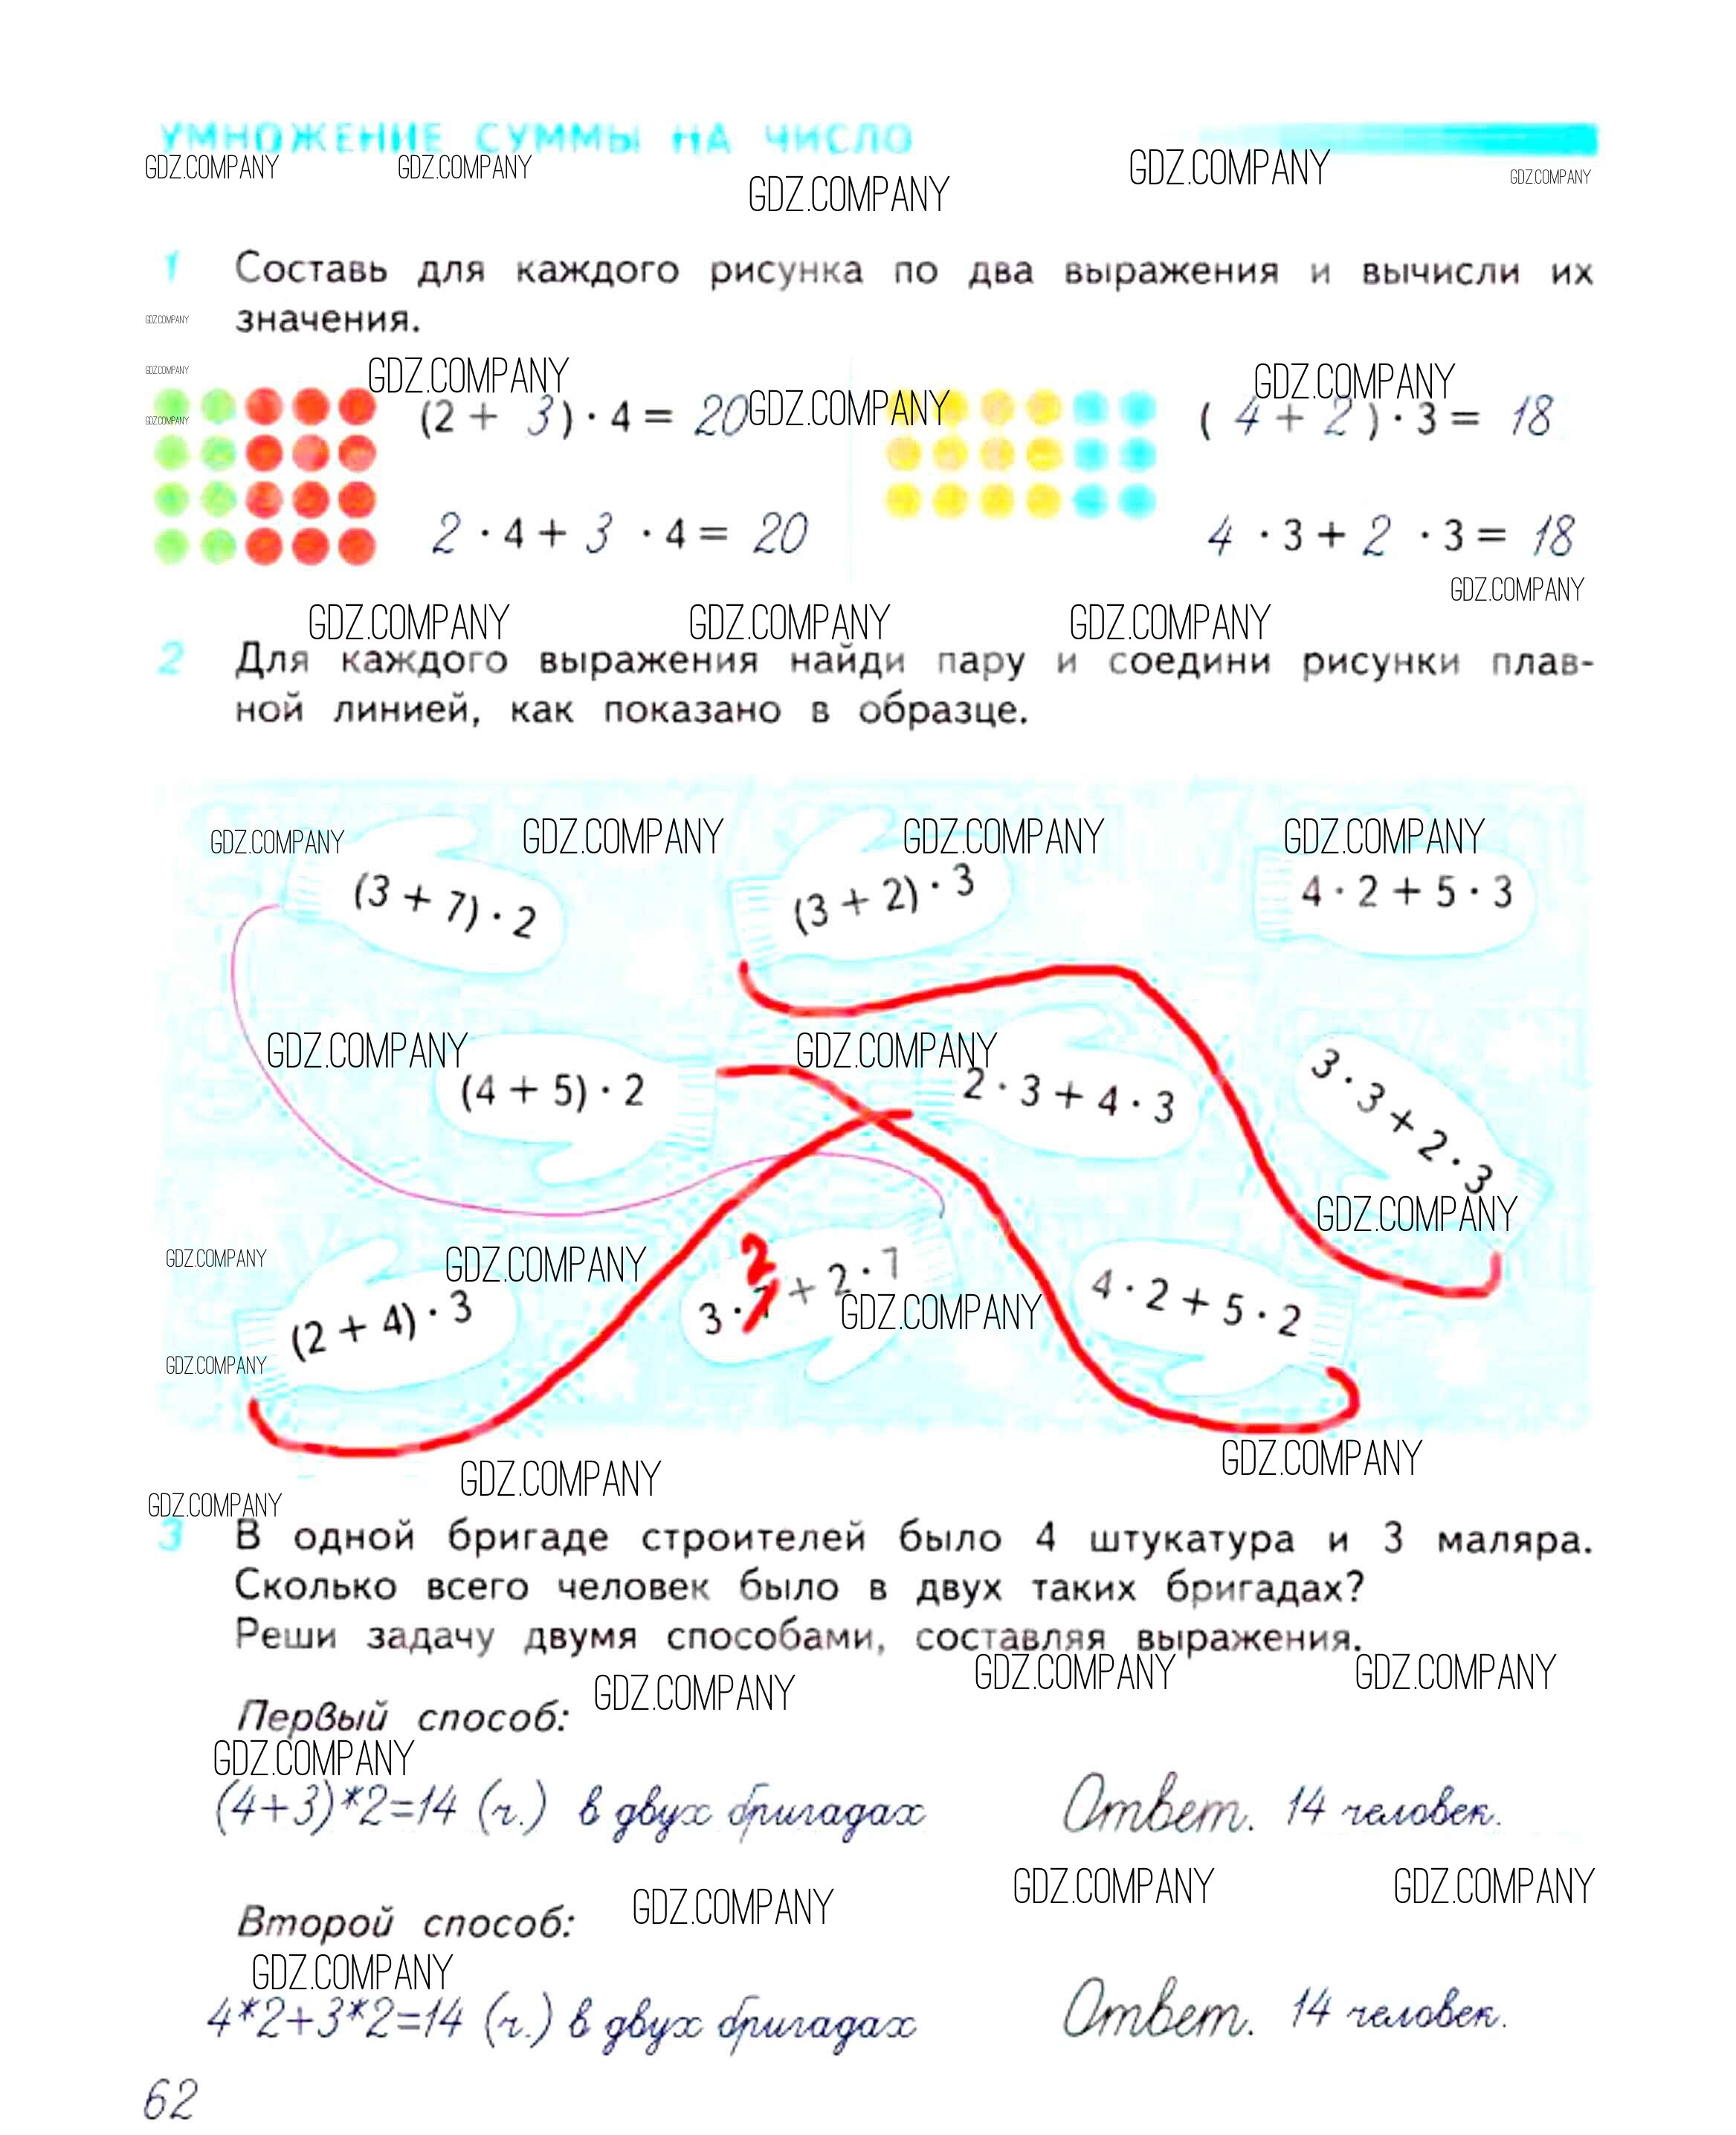 УМНОЖЕНИЕ СУММЫ НА ЧИСЛО
GDZ.COMPANY GDZ.COMPANY GDZ.COMPANY GDZ.COMPANY GDZ.COMPANY
1 Составь для каждого рисунка по два выражения и вычисли их
GDZ.COMPANY значения.
GDZ.COMPANY GDZ.COMPANY GDZ.COMPANY GDZ.COMPANY
GDZ.COMPANY (2 + 3) · 4 = 20 ( 4 + 2 ) · 3 = 18
2 · 4 + 3 · 4 = 20 4 · 3 + 2 · 3 = 18
GDZ.COMPANY
GDZ.COMPANY GDZ.COMPANY GDZ.COMPANY
2 Для каждого выражения найди пару и соедини рисунки плав-
ной линией, как показано в образце.
GDZ.COMPANY GDZ.COMPANY GDZ.COMPANY GDZ.COMPANY
(3 + 7) · 2 (3 + 2) · 3 4 · 2 + 5 · 3
GDZ.COMPANY GDZ.COMPANY
(4 + 5) · 2 2 · 3 + 4 · 3 3 · 3 + 2 · 3
GDZ.COMPANY
GDZ.COMPANY GDZ.COMPANY 2
(2 + 4) · 3 3 · 7 + 2 · 7 4 · 2 + 5 · 2
GDZ.COMPANY
GDZ.COMPANY
GDZ.COMPANY GDZ.COMPANY
GDZ.COMPANY
3 В одной бригаде строителей было 4 штукатура и 3 маляра.
Сколько всего человек было в двух таких бригадах?
Реши задачу двумя способами, составляя выражения.
GDZ.COMPANY GDZ.COMPANY GDZ.COMPANY
Первый способ:
GDZ.COMPANY
(4+3)*2=14 (ч.) в двух бригадах Ответ. 14 человек.
GDZ.COMPANY GDZ.COMPANY GDZ.COMPANY
Второй способ:
GDZ.COMPANY
4*2+3*2=14 (ч.) в двух бригадах Ответ. 14 человек.
62